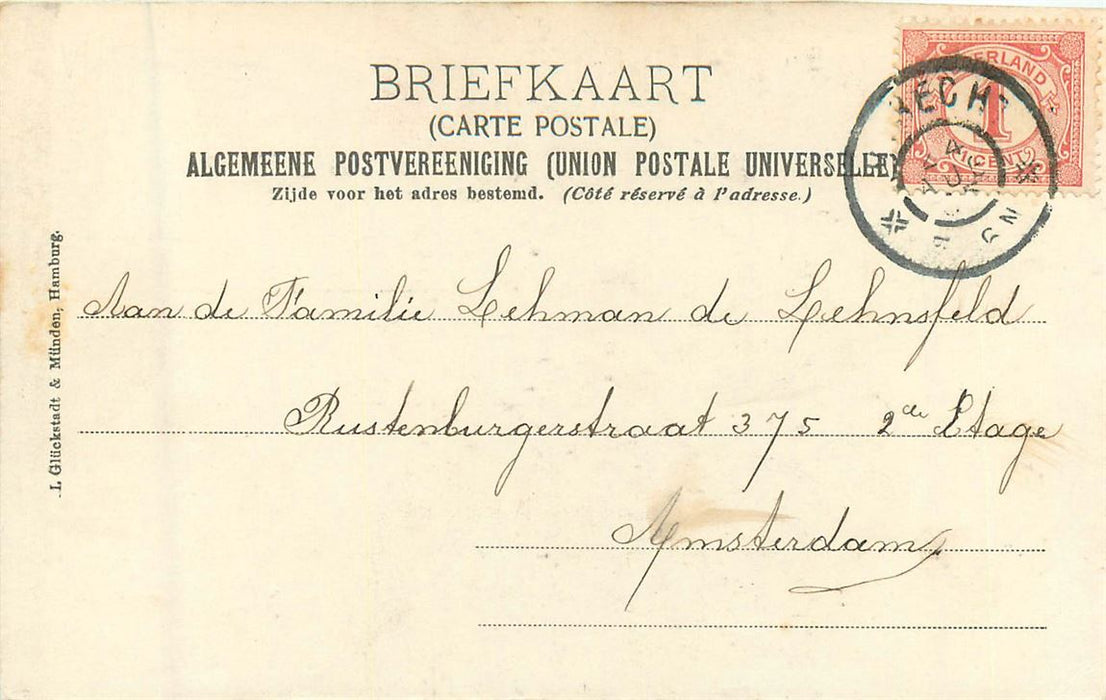 BRIEFKAART
(CARTE POSTALE)
ALGEMEENE POSTVEREENIGING (UNION POSTALE UNIVERSELLE)
Zijde voor het adres bestemd. (Côté réservé à l'adresse.)
NEDERLAND
1
CENT
Aan de Familie Lehman de Lehnsfeld
Rustenburgerstraat 375 2de Etage
Amsterdam
J. Glückstadt & Münden, Hamburg.